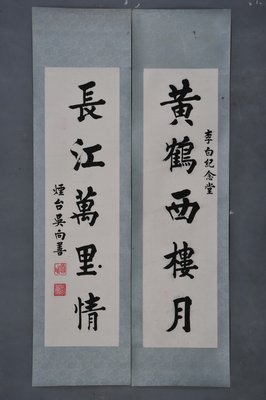 李白纪念堂
黄鶴西樓月
長江萬里情
煙台吴向善